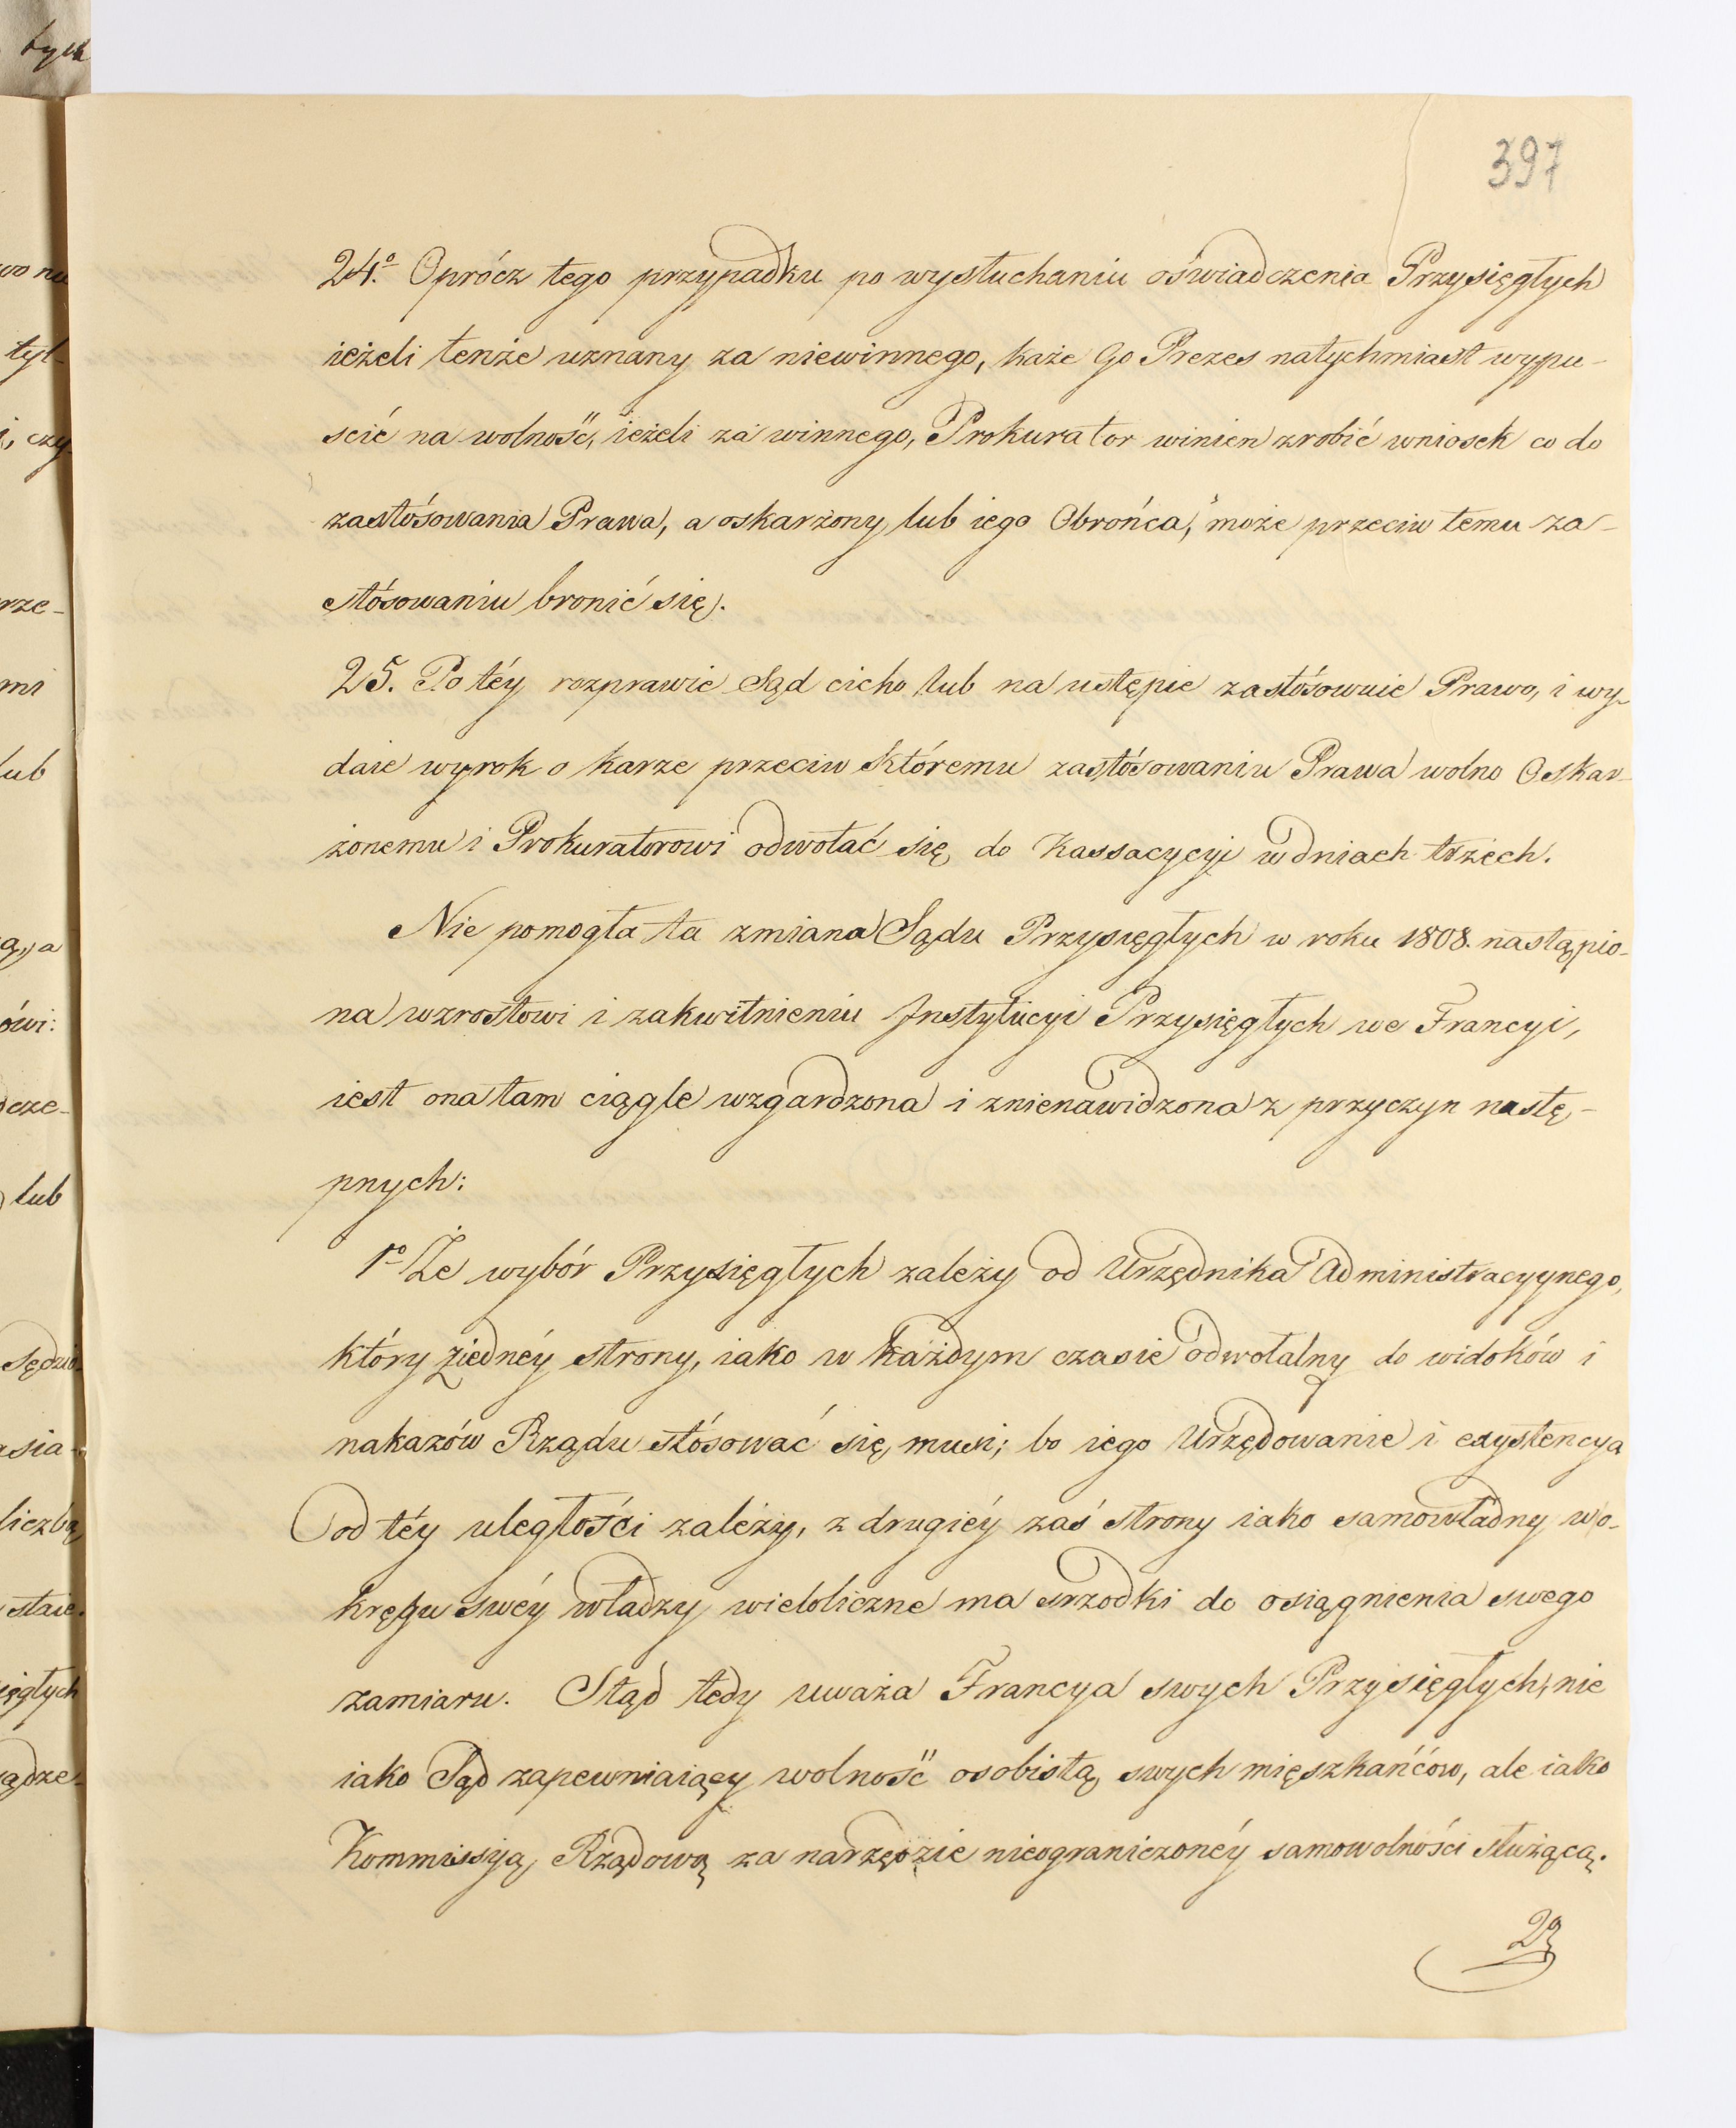 397
24.º Oprócz tego przypadku po wysłuchaniu oświadczenia Przysięgłych
ieżeli tenże uznany za niewinnego, każe Go Prezes natychmiast wypu-
ścić na wolność, ieżeli za winnego, Prokurator winien zrobić wniosek co do
zastósowania Prawa, a oskarżony lub iego Obrońca, może przeciw temu za-
stósowaniu bronić się.
25. Po téy rozprawie Sąd cicho lub na ustępie zastósowuie Prawo, i wy-
daie wyrok o karze przeciw któremu zastósowaniu Prawa wolno Oskar-
żonemu i Prokuratorowi odwołać się do Kassacycyi w dniach trzech.
Nie pomogła ta zmiana Sądu Przysięgłych w roku 1808. nastąpio-
na wzrostowi i zakwitnieniu Instytucyi Przysięgłych we Francyi,
iest ona tam ciągle wzgardzona i znienawidzona z przyczyn nastę-
pnych:
1º Że wybór Przysięgłych zależy od Urzędnika Administracyynego,
który z iednéy strony, iako w każdym czasie odwołalny do widoków i
nakazów Rządu stósować się musi; bo iego Urzędowanie i exystencya
od téy uległości zależy, z drugiéy zaś strony iako samowładny w o-
kręgu swéy władzy wieloliczne ma srzodki do osiągnienia swego
zamiaru. Stąd tedy uważa Francya swych Przysięgłych, nie
iako Sąd zapewniaiący wolność osobistą swych mięszkańców, ale iako
Kommissyją Rządową za narzędzie nieograniczonéy samowolności służącą.
2º
tych
tyl-
i, czy
rze-
mi
lub
ą, a
ówi:
lub
sia-
liczbą
staie